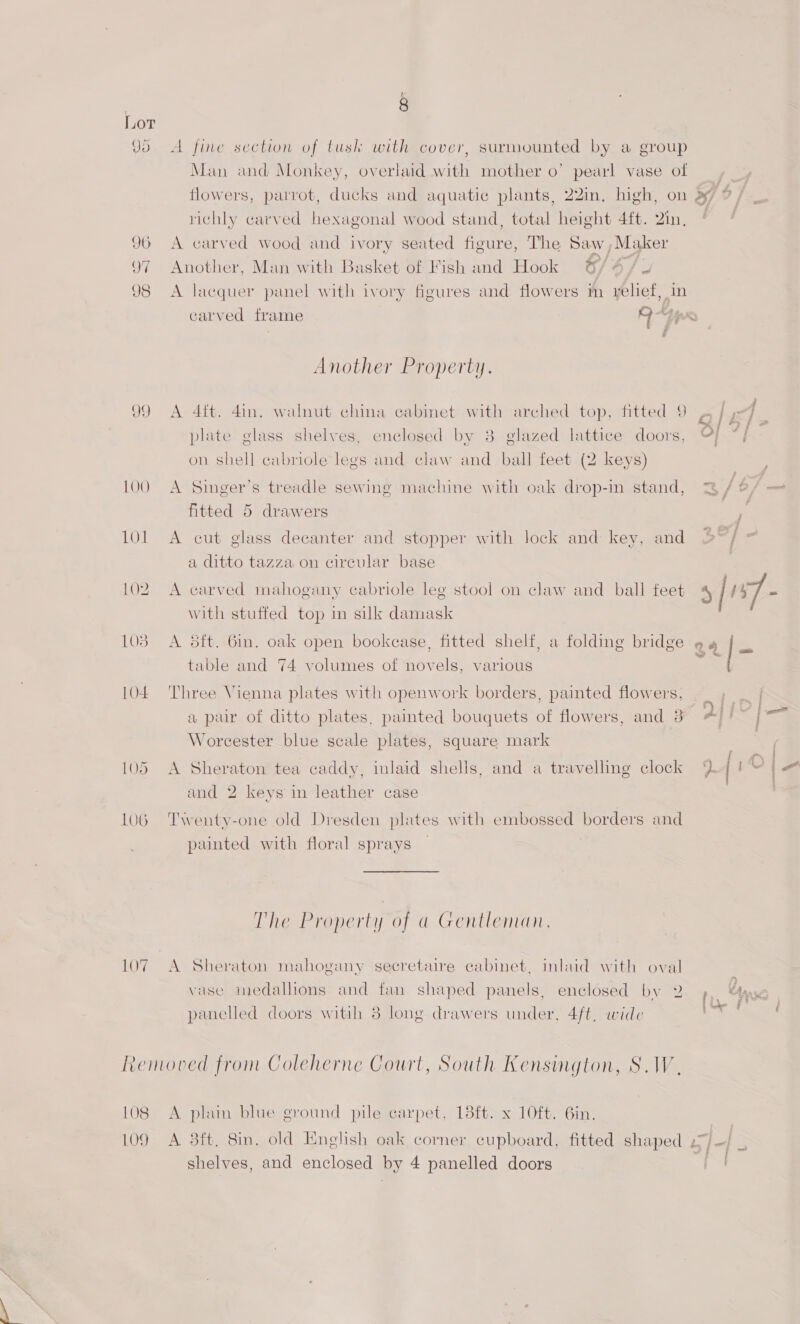 8
Lot
95 A fine section of tusk with cover, surmounted by a group
Man and Monkey, overlaid with mother o' pearl vase of
flowers, parrot, ducks and aquatic plants, 22in. high, on
richly carved hexagonal wood stand, total height 4ft. 2in.
96 A carved wood and ivory seated figure, The Saw Maker
97 Another, Man with Basket of Fish and Hook
98 A lacquer panel with ivory figures and flowers in relief, in
carved frame
Another Property.
99 A 4ft. 4in. walnut china cabinet with arched top, fitted 9
plate glass shelves, enclosed by 3 glazed lattice doors,
on shell cabriole legs and claw and ball feet (2 keys)
100 A Singer's treadle sewing machine with oak drop-in stand,
fitted 5 drawers
101 A cut glass decanter and stopper with lock and key, and
a ditto tazza on circular base
102 A carved mahogany cabriole leg stool on claw and ball feet
with stuffed top in silk damask
103 A 3ft. 6in. oak open bookcase, fitted shelf, a folding bridge
table and 74 volumes of novels, various
104 Three Vienna plates with openwork borders, painted flowers,
a pair of ditto plates, painted bouquets of flowers, and 3
Worcester blue scale plates, square mark
105 A Sheraton tea caddy, inlaid shells, and a travelling clock
and 2 keys in leather case
106 Twenty-one old Dresden plates with embossed borders and
painted with floral sprays
The Property of a Gentleman.
107 A Sheraton mahogany secretaire cabinet, inlaid with oval
vase medallions and fan shaped panels, enclosed by 2
panelled doors witih 3 long drawers under, 4ft. wide
Removed from Coleherne Court, South Kensington, S.W.
108 A plain blue ground pile carpet, 13ft. x 10ft. 6in.
109 A 3ft. 8in. old English oak corner cupboard, fitted shaped
shelves, and enclosed by 4 panelled doors